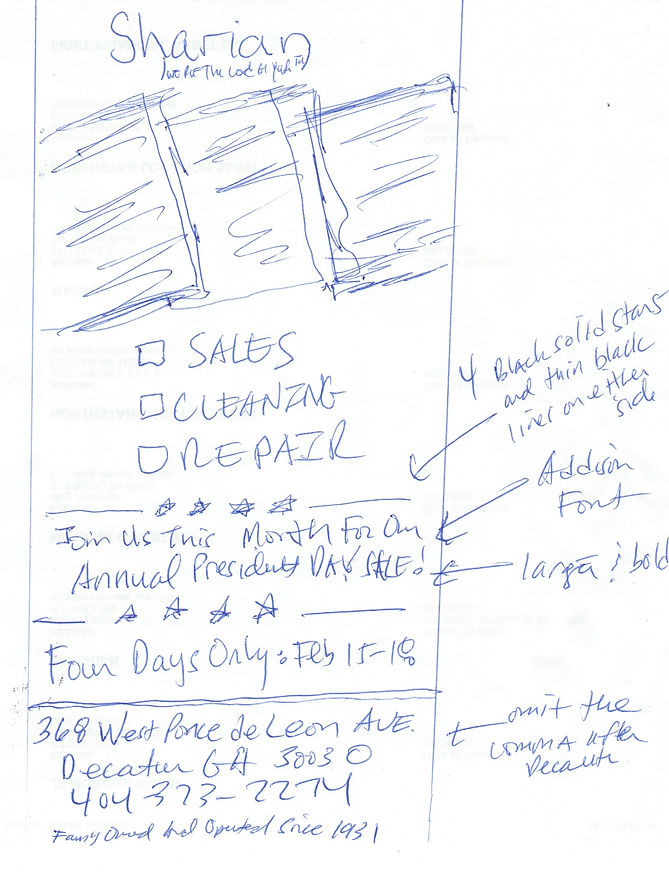 Sharian
SALES
CLEANING
REPAIR
4 Black solid stars
and thin black
lines on either
side
Addison
Font
Join Us This Month For Our
Annual Presidents DAY SALE!
larger & bold
Four Days Only: Feb 15-18
368 West Ponce de Leon AVE.
Decatur GA 30030
404-373-2274
omit the
comma after
Decatur
Family Owned And Operated Since 1931